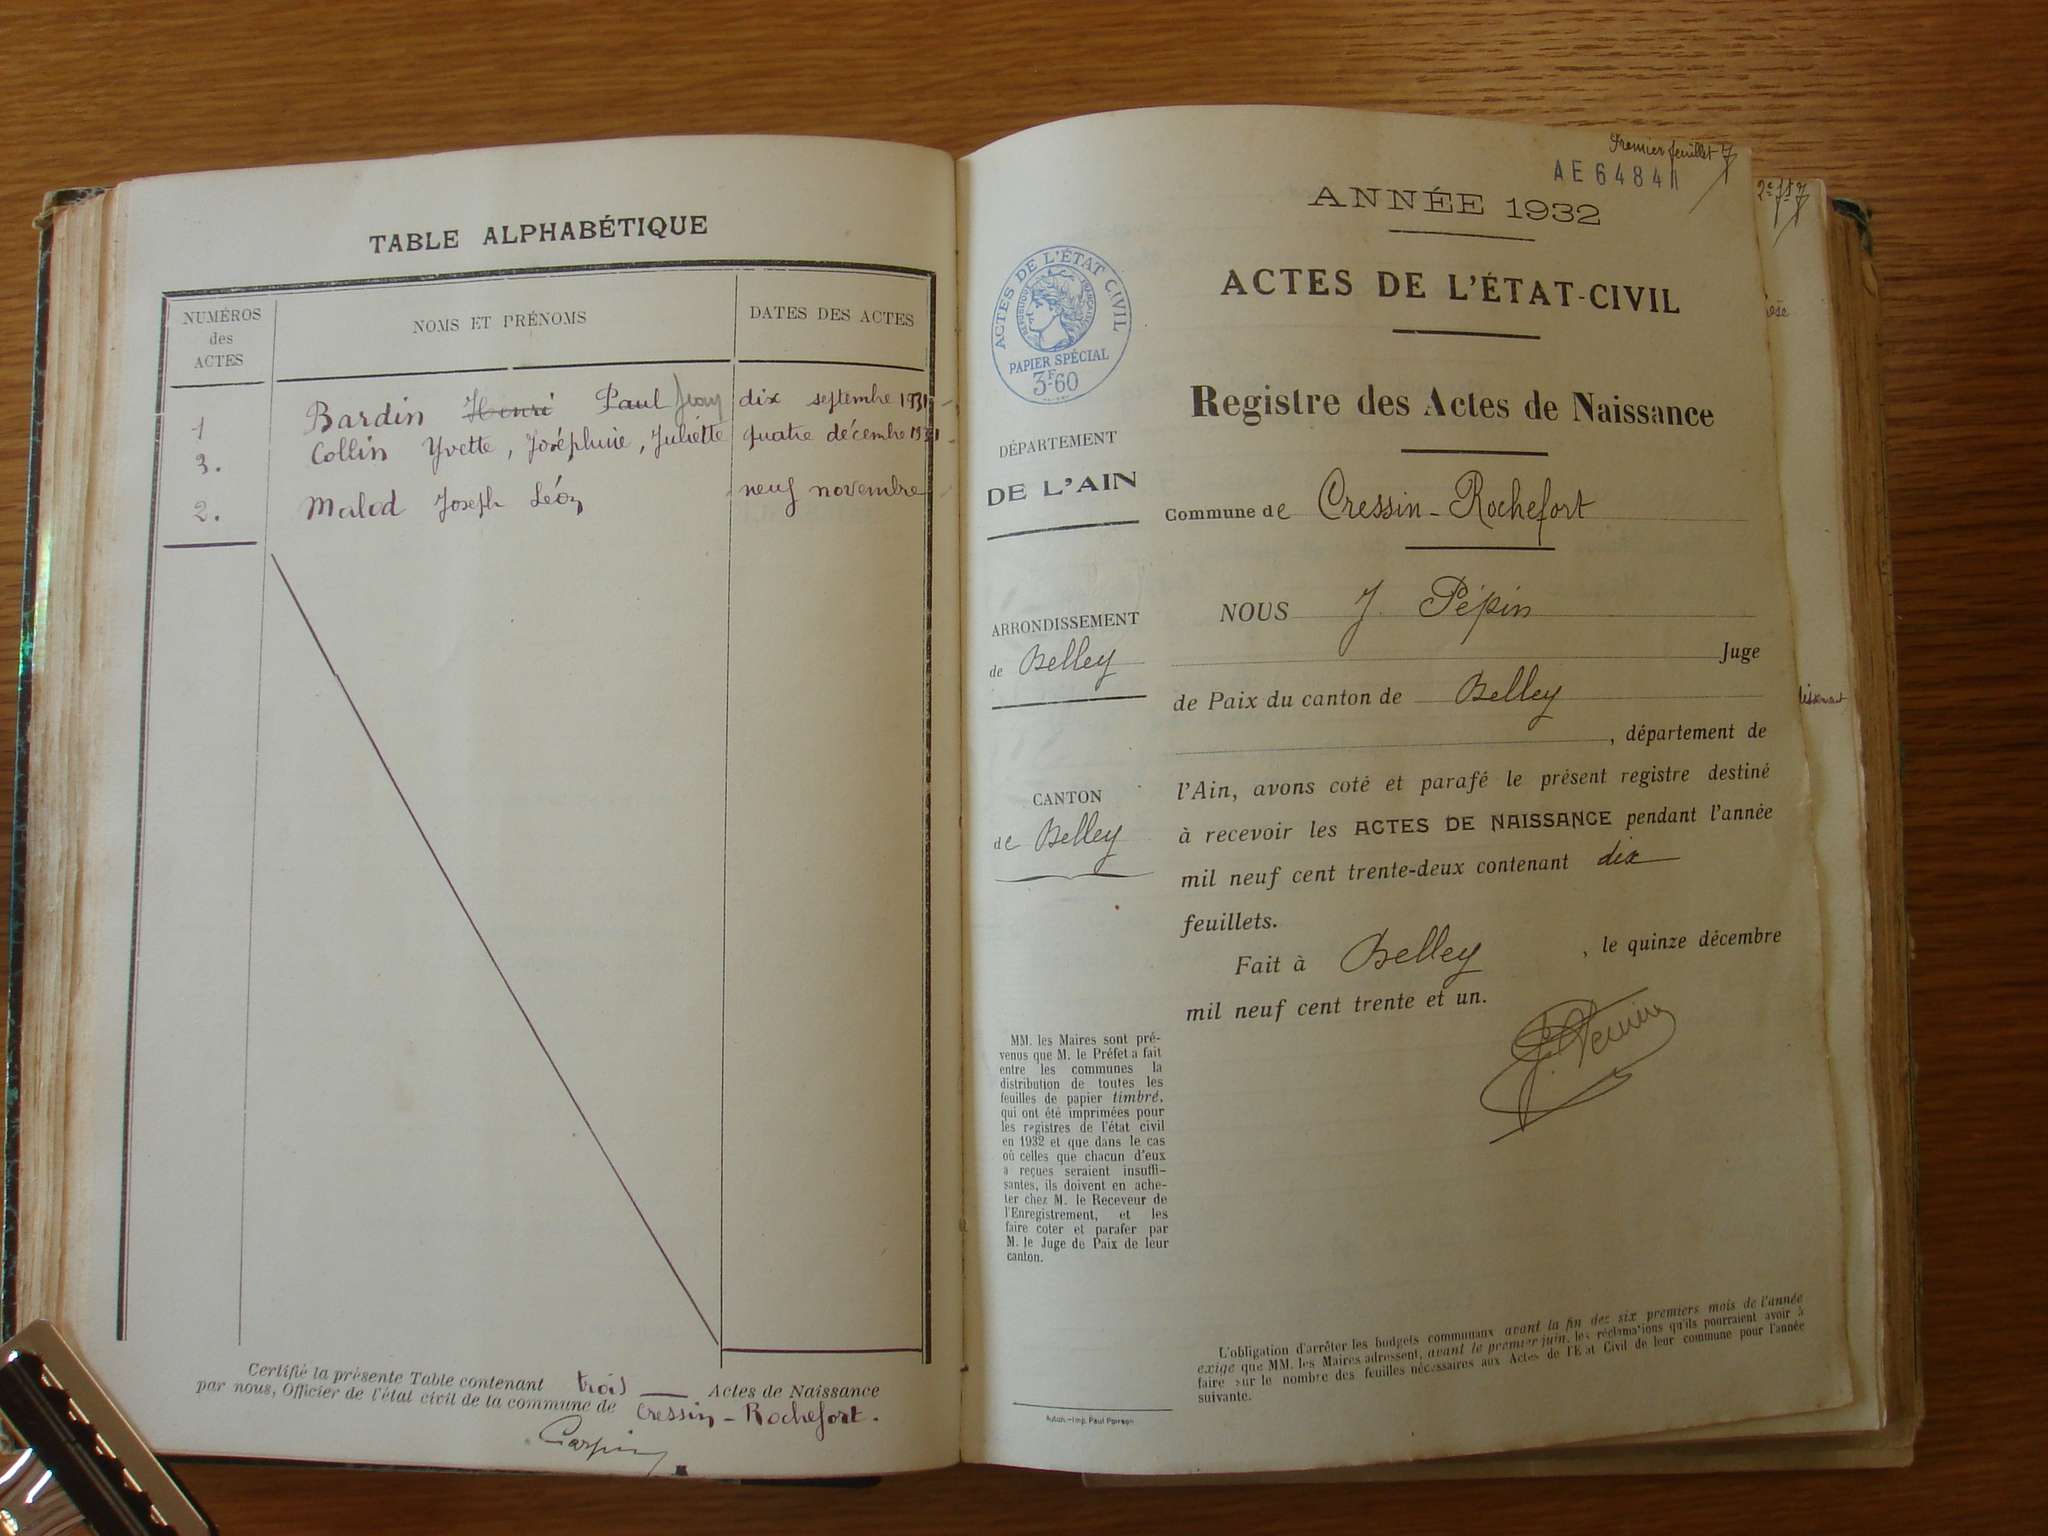 TABLE ALPHABÉTIQUE
NUMÉROS des ACTES
NOMS ET PRÉNOMS
DATES DES ACTES
1 Bardin Henri Paul Jean dix septembre 1931
3. Collin Yvette, Joséphine, Juliette quatre décembre 1931
2. Malod Joseph Léon neuf novembre
Certifié la présente Table contenant trois Actes de Naissance
par nous, Officier de l'état civil de la commune de Cressin-Rochefort.
Premier feuillet
AE 64841
ANNÉE 1932
ACTES DE L'ÉTAT-CIVIL
Registre des Actes de Naissance
Commune de Cressin-Rochefort
NOUS J. Pépin
Juge
de Paix du canton de Belley
, département de
l'Ain, avons coté et parafé le présent registre destiné
à recevoir les ACTES DE NAISSANCE pendant l'année
mil neuf cent trente-deux contenant dix
feuillets.
Fait à Belley, le quinze décembre
mil neuf cent trente et un.
ACTES DE L'ÉTAT CIVIL
RÉPUBLIQUE FRANÇAISE
PAPIER SPÉCIAL
3F60
DÉPARTEMENT
DE L'AIN
ARRONDISSEMENT
de Belley
CANTON
de Belley
MM. les Maires sont pré-
venus que M. le Préfet a fait
entre les communes la
distribution de toutes les
feuilles de papier timbré,
qui ont été imprimées pour
les registres de l'état civil
en 1932 et que dans le cas
où celles que chacun d'eux
a reçues seraient insuffi-
santes, ils doivent en ache-
ter chez M. le Receveur de
l'Enregistrement, et les
faire coter et parafer par
M. le Juge de Paix de leur
canton.
L'obligation d'arrêter les budgets communaux avant la fin des six premiers mois de l'année
exige que MM. les Maires adressent, avant le premier juin, les réclamations qu'ils pourraient avoir à
faire sur le nombre des feuilles nécessaires aux Actes de l'Etat Civil de leur commune pour l'année
suivante.